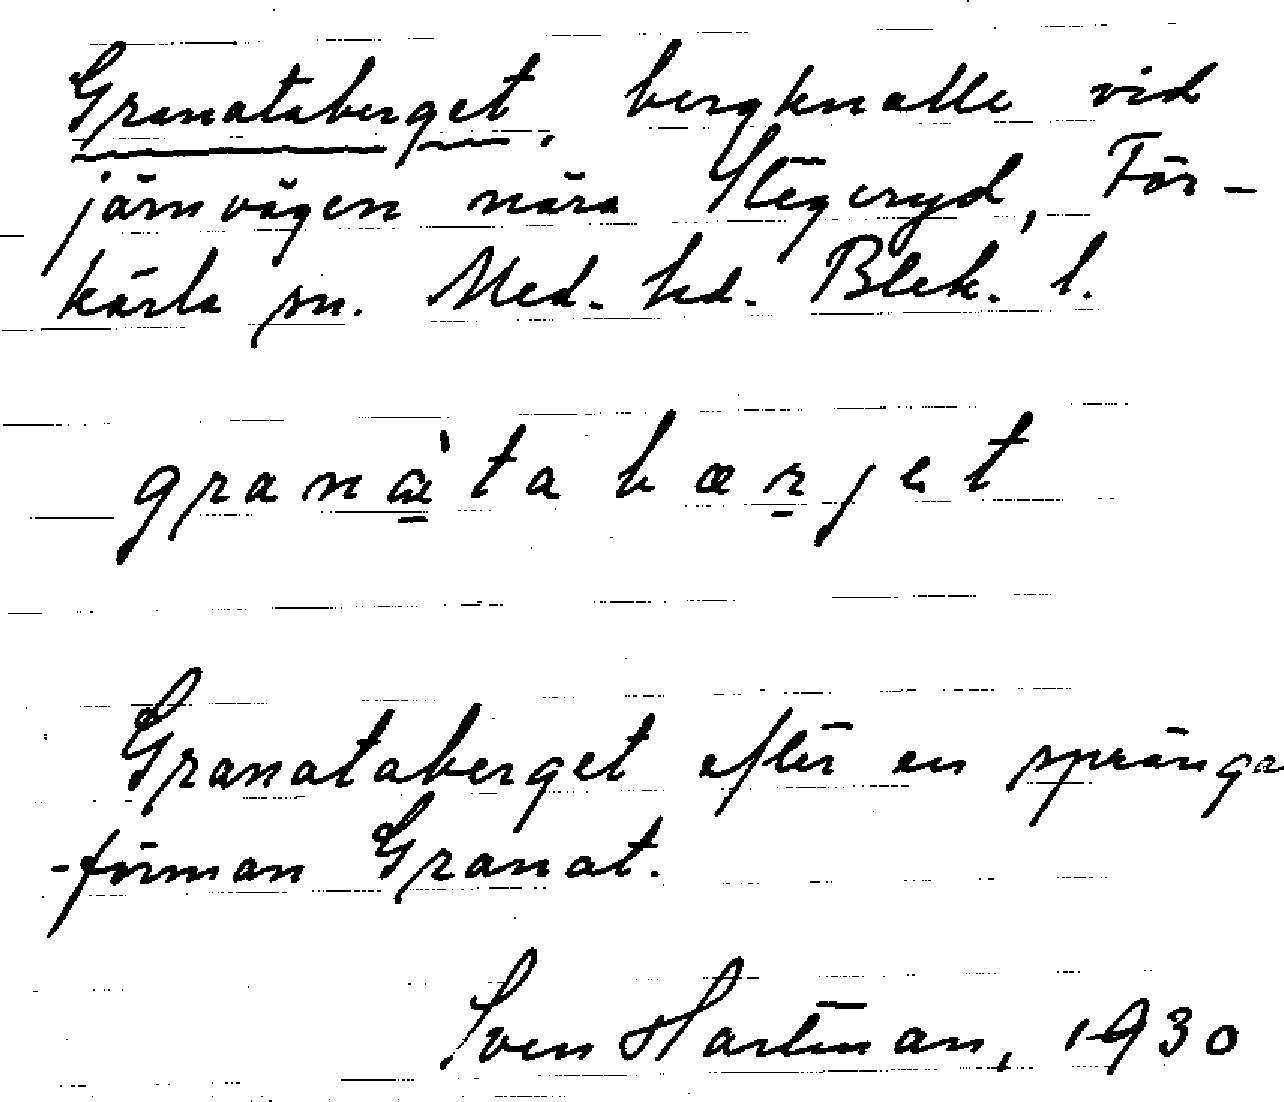 Granataberget, bergknalle vid
järnvägen nära Stegeryd, För-
kärla sn. Med. hd. Blek. l.
granàtabærjet
Granataberget efter en spränga
-förman Granat.
Sven Hartman, 1930